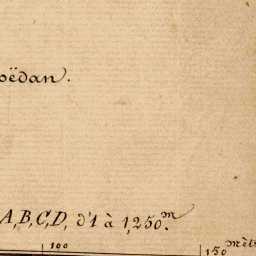 oëdan.
A, B, C, D, d'1 à 1,250.m
100 150 mèt